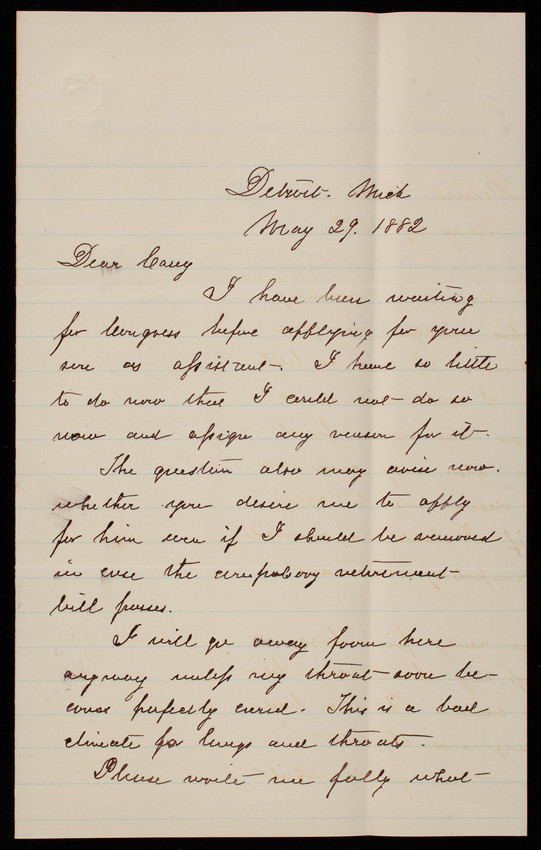 Detroit. Mich
May 29. 1882
Dear Casey
I have been waiting
for Congress before applying for your
son as assistant. I have so little
to do now that I could not do so
now and assign any reason for it.
The question also may arise now.
whether you desire me to apply
for him even if I should be removed
in case the compulsory retirement
bill passes.
I will go away from here
anyway unless my throat soon be-
comes perfectly cured. This is a bad
climate for lungs and throats.
Please write me fully what